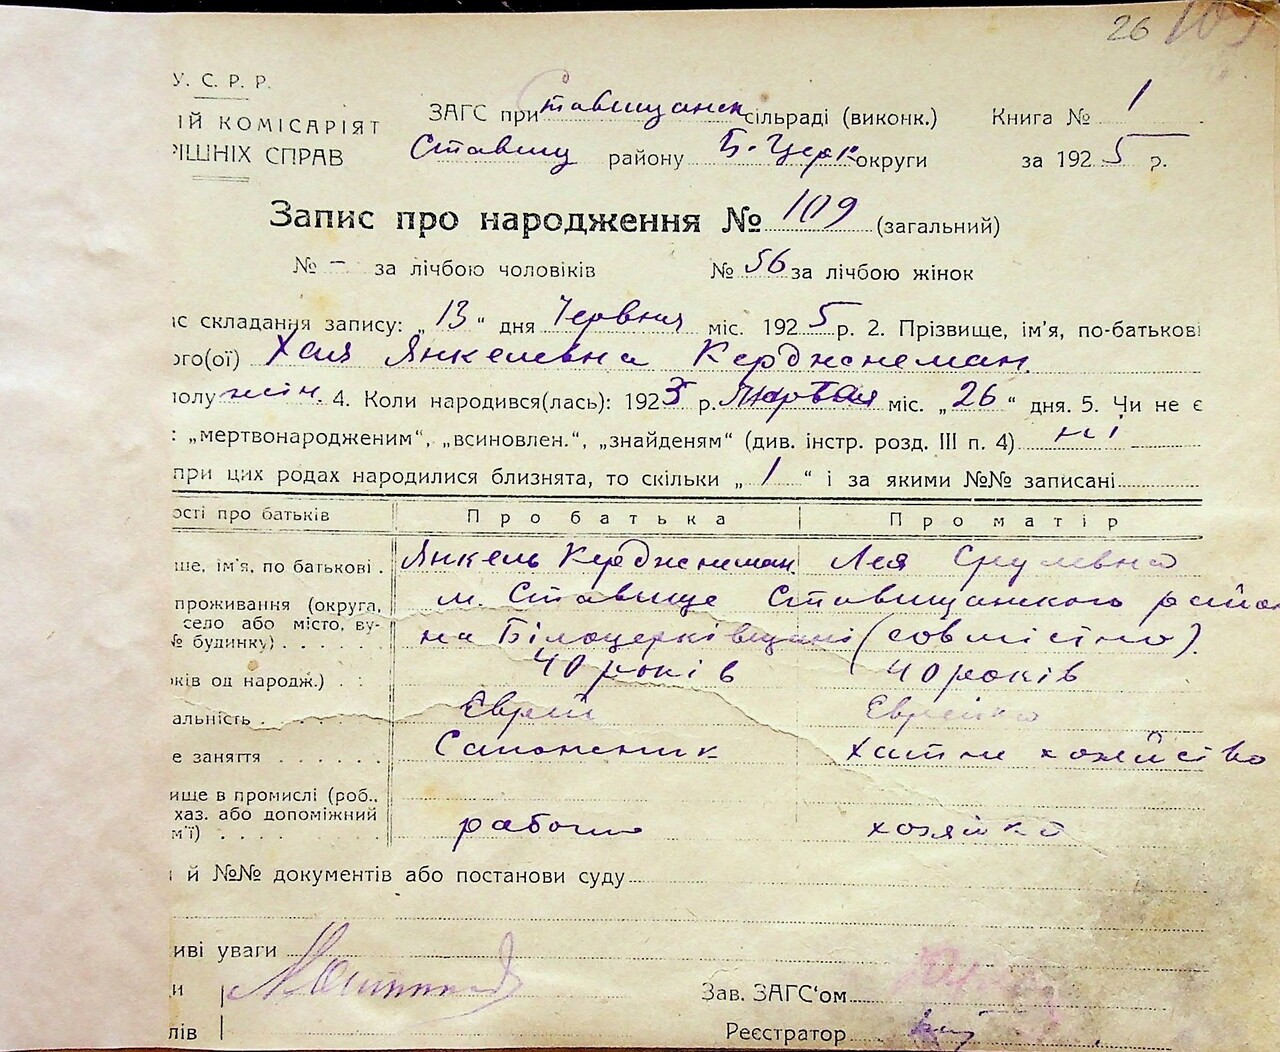 26
У. С. Р. Р.
ІЙ КОМІСАРІЯТ
РІШНІХ СПРАВ
ЗАГС при Ставищанск сільраді (виконк.) Книга № 1
Ставищ району Б-Церк округи за 1925 р.
Запис про народження № 109 (загальний)
№ – за лічбою чоловіків № 56 за лічбою жінок
ас складання запису: „13“ дня Червня міс. 1925 р. 2. Прізвище, ім'я, по-батькові
ого(ої) Хая Янкелевна Керджнеман
полу жін. 4. Коли народився(лась): 1925 р. міс. „26“ дня. 5. Чи не є
: „мертвонародженим“, „всиновлен.“, „знайденям“ (див. інстр. розд. III п. 4) ні
при цих родах народилися близнята, то скільки „1“ і за якими №№ записані
ості про батьків Про батька Про матір
ше, ім'я, по батькові . Янкель Керджнеман Лея Срулевна
проживання (округа, м. Ставище Ставищанского район
село або місто, ву-
№ будинку) на Білоцерківщині (совмістно).
ків од народж.) 40 років 40 років
альність Еврей Еврейка
е заняття Сапожник хатне хозяйство
ище в промислі (роб.,
хаз. або допоміжний
м'ї) рабочи хозяйка
і й №№ документів або постанови суду
иві уваги
и
Зав. ЗАГС'ом
лів
Реєстратор